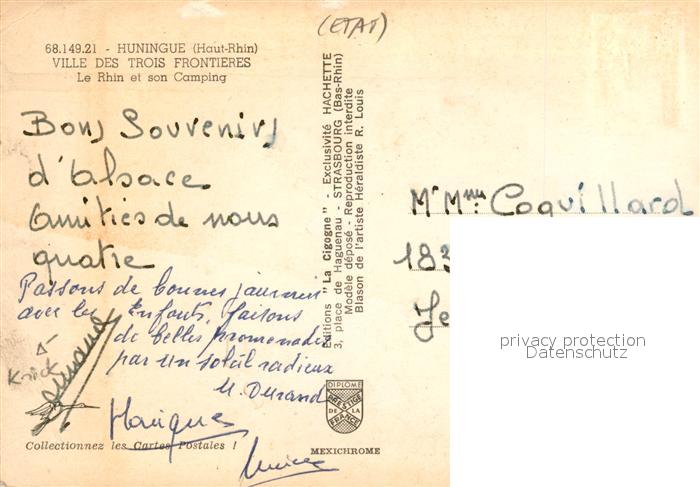 (ETAT)
68.149.21 - HUNINGUE (Haut-Rhin)
VILLE DES TROIS FRONTIERES
Le Rhin et son Camping
Bons Souvenirs
d'Alsace
Amitiés de nous
quatre
Passons de bonnes journées
avec les Enfants, faisons
de belles promenades
par un soleil radieux
M. Durand
Knick
Monique
Collectionnez les Cartes Postales !
Editions "La Cigogne" - Exclusivité HACHETTE
3, place de Haguenau - STRASBOURG (Bas-Rhin)
Modèle déposé - Reproduction interdite
Blason de l'artiste Héraldiste R. Louis
DIPLOME
PRESTIGE
DE LA
FRANCE
MEXICHROME
Mr Mme Coquillard
18
privacy protection
Datenschutz